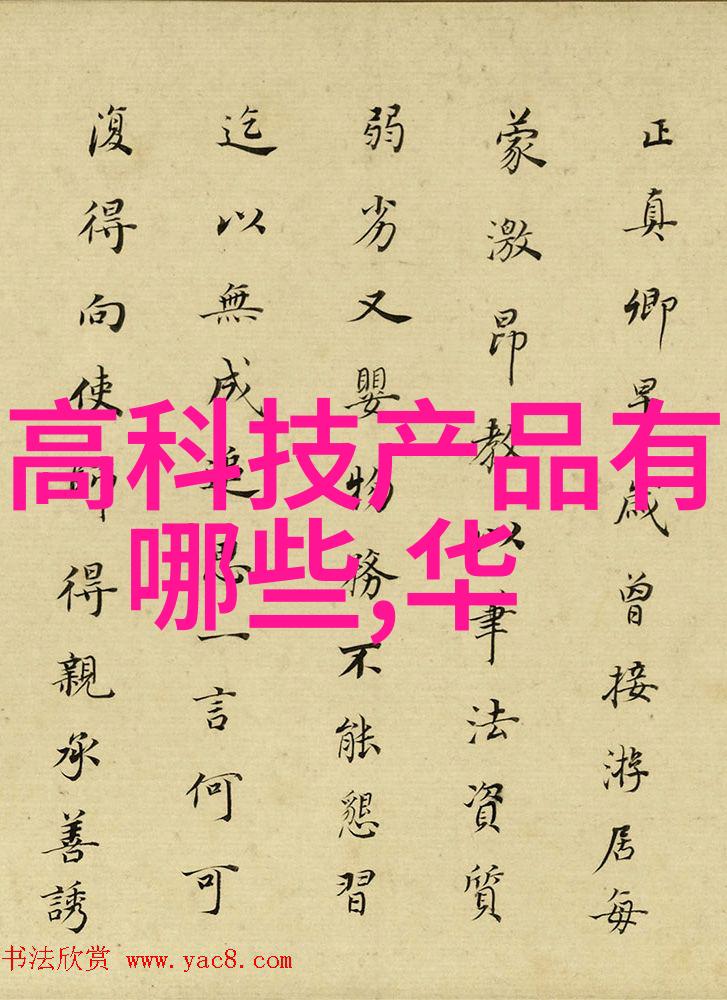 正真卿早歲曾接游居每
蒙激昂教以筆法資質
弱劣又嬰物務不能懇習
迄以無成追思一言何可
復得向使師得親承善誘
高科技产品有
哪些,华
书法欣赏 www.yac8.com